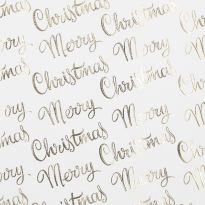 Christmas Merry Christmas
Merry Christmas Merry
Christmas Merry Christmas
Merry Christmas Merry
Christmas Merry Christmas
Merry Christmas Merry